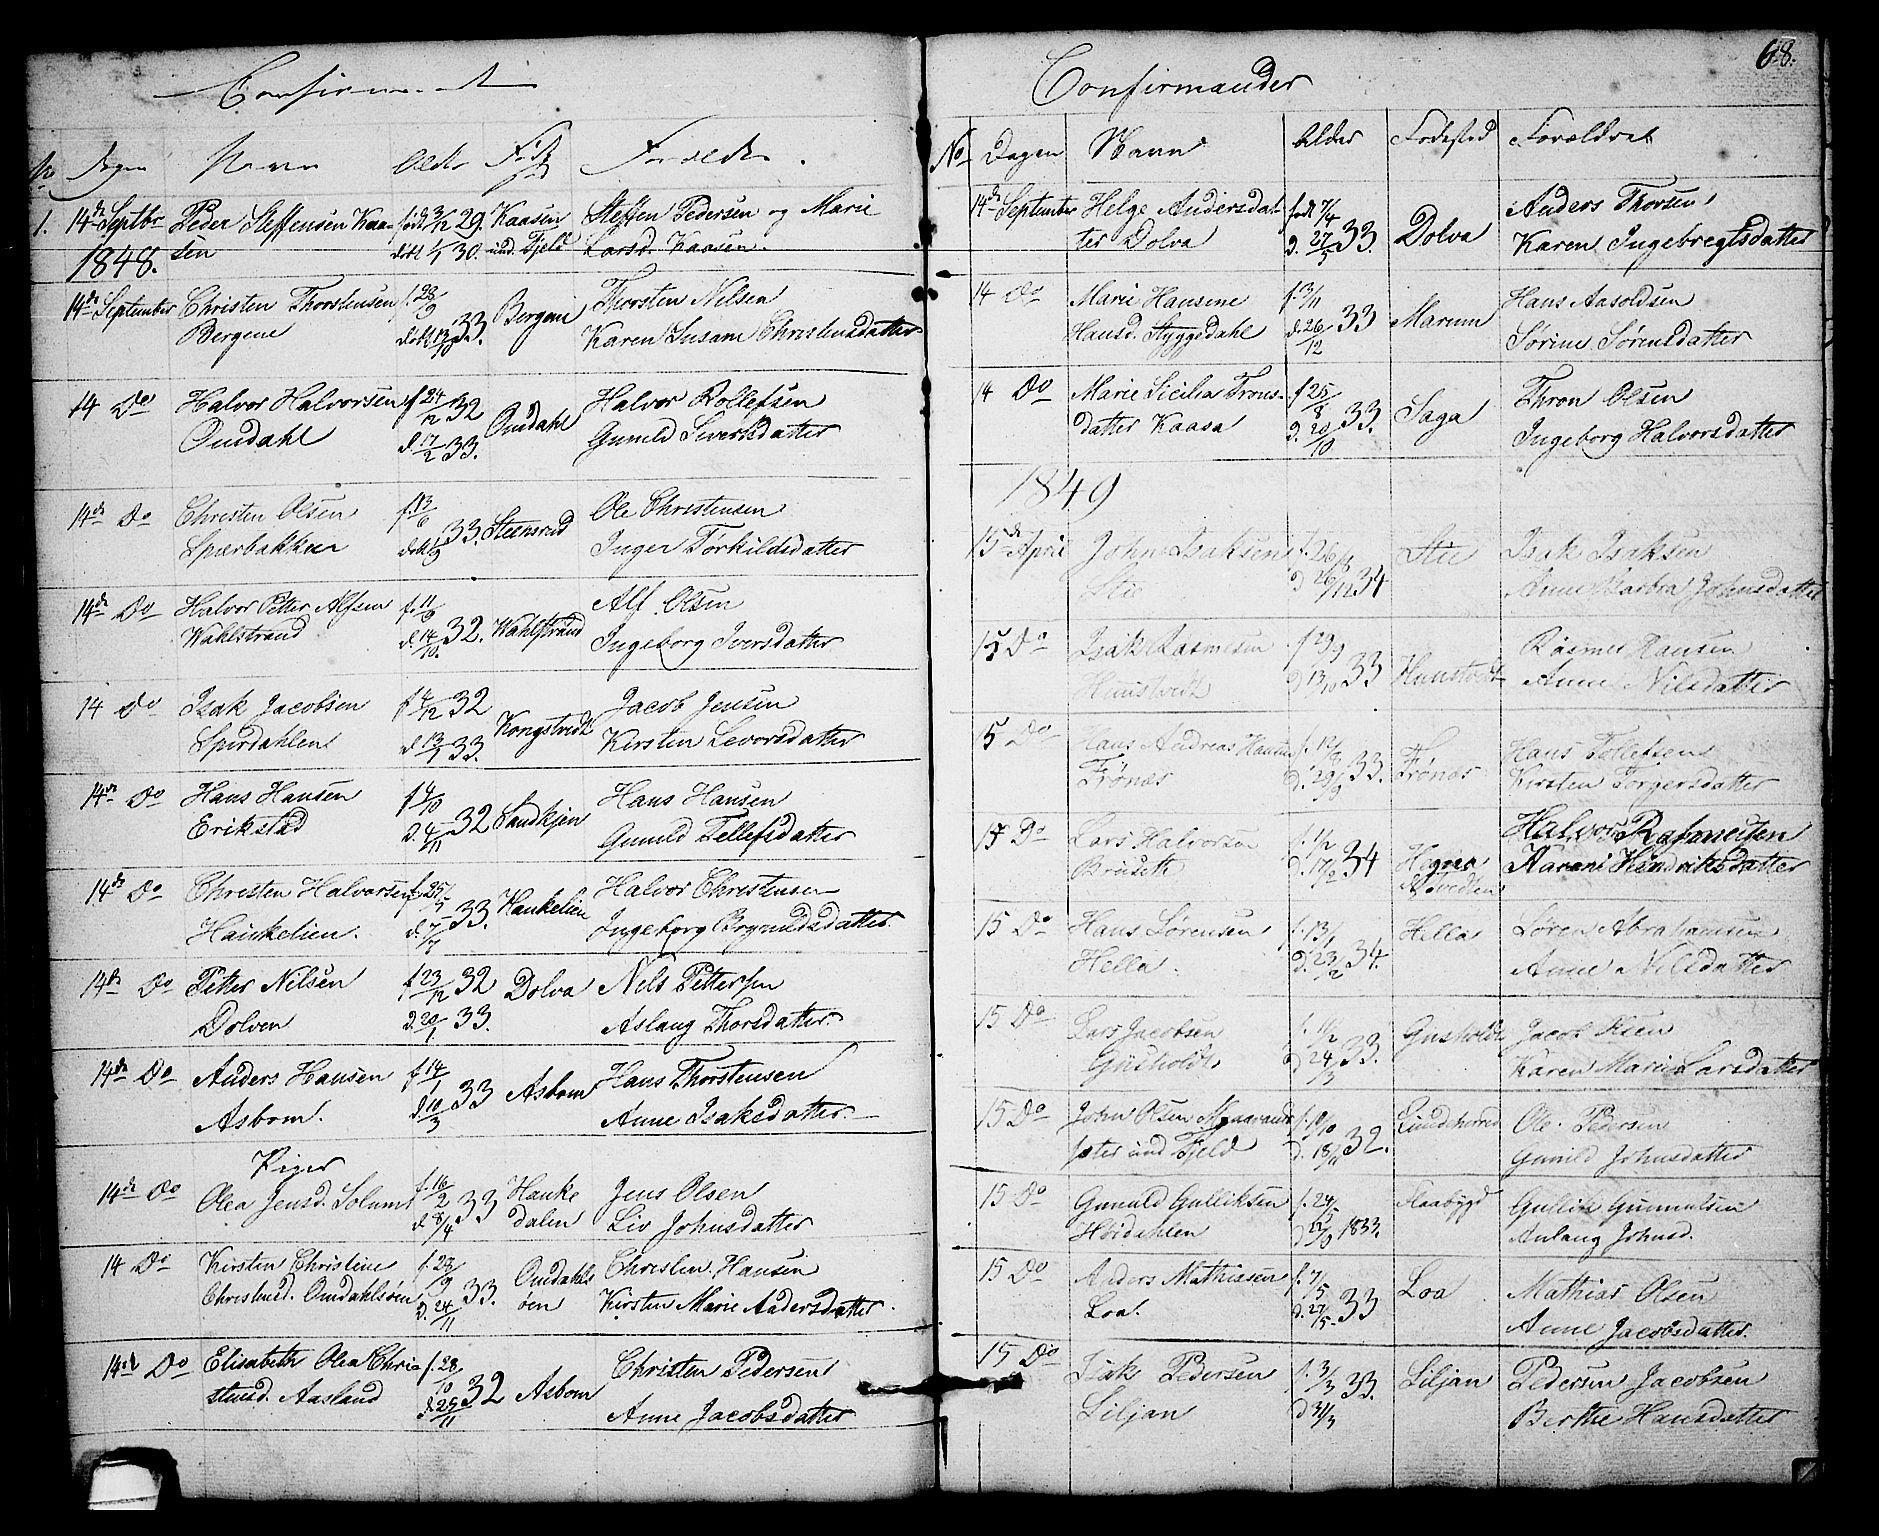 Confirmand
No Dagen Navn Alder Føde sted Forældre.
1. 14de Septbr Peder Steffensen Kaa- født 3/12 29. Kaasen Steffen Pedersen og Marie
1848. sen døbt 1/1 30. und. Fjeld Larsd. Kaasen.
14de September Christen Thorstensen f. 28/9 Bergene Thorsten Nilsen
Bergene døbt 13/10 33. Karen Susane Christensdatter
14 Do Halvor Halvorsen f 24/12 32 Omdahl Halvor Rollefsen
Omdahl d. 17/2 33. Gunild Sivertsdatter
14de Do Christen Olsen f. 13/6 33. Steensrud Ole Christensen
Spærbakken døbt 1/9 Inger Tørkildsdatter
14de Do Halvor Petter Alfsen f. 11/9 32. Wahlstrand Alf Olsen
Wahlstrand d. 14/10. Ingeborg Iversdatter
14 Do Isak Jacobsen f /12 32 Kongstvedt Jacob Jensen
Spirdahlen d. 13/1 33. Kirsten Sevorsdatter
14de Do Hans Hansen f /10 32 Sandkjen Hans Hansen
Erikstad d. 4/11 Gunild Tellefsdatter
14de Do Christen Halvorsen f. 25/5 33. Haukelien Halvor Christensen
Haukelien. d. 7/7 Ingeborg Brynildsdatter.
14de Do Petter Nilsen f 23/12 32 Dolva Nels Pettersen
Dolven d. 20/1 33. Aslaug Thorsdatter.
14de Do Anders Hansen f 14/1 33 Asbom Hans Thorstensen
Asbom. d. 10/3 Anne Isaksdatter.
Piger
14de Do Olea Jensd. Solum f. 16/2 33 Hauke Jens Olsen
d 8/4 dalen Liv Johnsdatter
14 Do Kirsten Christine f. 23/9 33. Omdahls Christen Hansen
Christensd. Omdahlsøen d. 24/11 øen Kirsten Marie Andersdatter.
14de Do Elisabeth Olea Chri- f. 28/10 32 Asbom Christen Pedersen
stensd. Aasland d. 29/11 Anne Jacobsdatter
68.
Confirmander
No Dagen Navn Alder Fødested Forældre
14de September Helge Andersdat- født 7/4 33 Dolva Anders Thorsen
ter Dolva d. 27/5 Karen Ingebregtsdatter
14 Do Marie Hansine f. 3/11 33 Marum Hans Aasoldsen
Hansd. Styggedahl d. 26/12 Sørine Sørensdatter
14 Do Marie Sicilia Trons- f 25/8 33. Saga Thron Olsen
datter Kaasa d. 20/10 Ingeborg Halvorsdatter
1849
15de April John Isaksen f. 26/ 34 Stie Isak Isaksen
Stie d 26/12 Anne Barbra Johnsdatter
15 Do Isak Rasmesen f 29/9 33 Hunstvedt Rasmes Hansen
Hunstvedt d 13/10 Anne Nilsdatter
5 Do Hans Andreas Hansen f. 12/8 33. Frønæs Hans Tollefsen
Frønæs d. 29/9 Kirsten Torgersdatter
15 Do Lars Halvorsen f. 1/2 34 Hegna Halvor Rasmessen
Bruseth d. 17/2 Karani Hendriksdatter
15 Do Hans Sørensen f. 13/1 34. Hella Søren Abrahamsen
Hella. d. 23/2 Anne Nilsdatter
15 Do Lars Jacobsen f. 11/2 33. Gusholdt Jacob Olsen
Gusholdt d 24/3 Karen Marie Larsdatter
15 Do John Olsen f. 19/10 32. Lundeherred Ole Pedersen
und Fjeld d. 18/11 Gunild Johnsdatter
15 Do Gunuld Gulliksen f. 24/5 Flaabygd Gullik Gunnulsen
Høidahlen d 15/9 1833. Anlaug Johnsd.
15 Do Anders Mathiasen f. 7/5 33 Loa Mathias Olsen
Loa. d. 27/5. Anne Jacobsdatter.
15 Do Isak Pedersen f. 3/3 33. Siljan Pedersen Jacobsen
Siljan d 31/3 Berthe Hansdatter